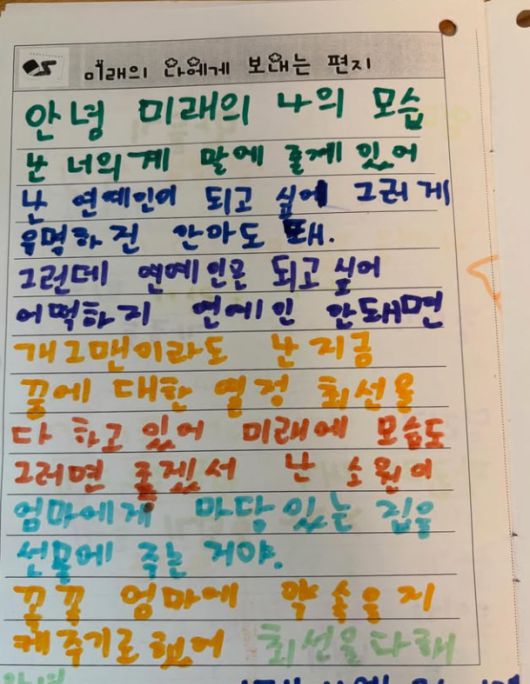 미래의 나에게 보내는 편지
안녕 미래의 나의 모습
난 너의계 말에 줄게 있어
난 연예인이 되고 싶에 그러게
유명하진 안아도 돼.
그런데 연예인은 되고 싶어
어떡하지 연예인 안돼면
개그맨이라도 난 지금
꿈에 대한 열정 최선을
다 하고 있어 미래에 모습도
그러면 좋겠서 난 소원이
엄마에게 마당 있는 집을
선물에 주는 거야.
꼭꼭 엄마에 약속을 지
켜주기로 했어 최선을다해